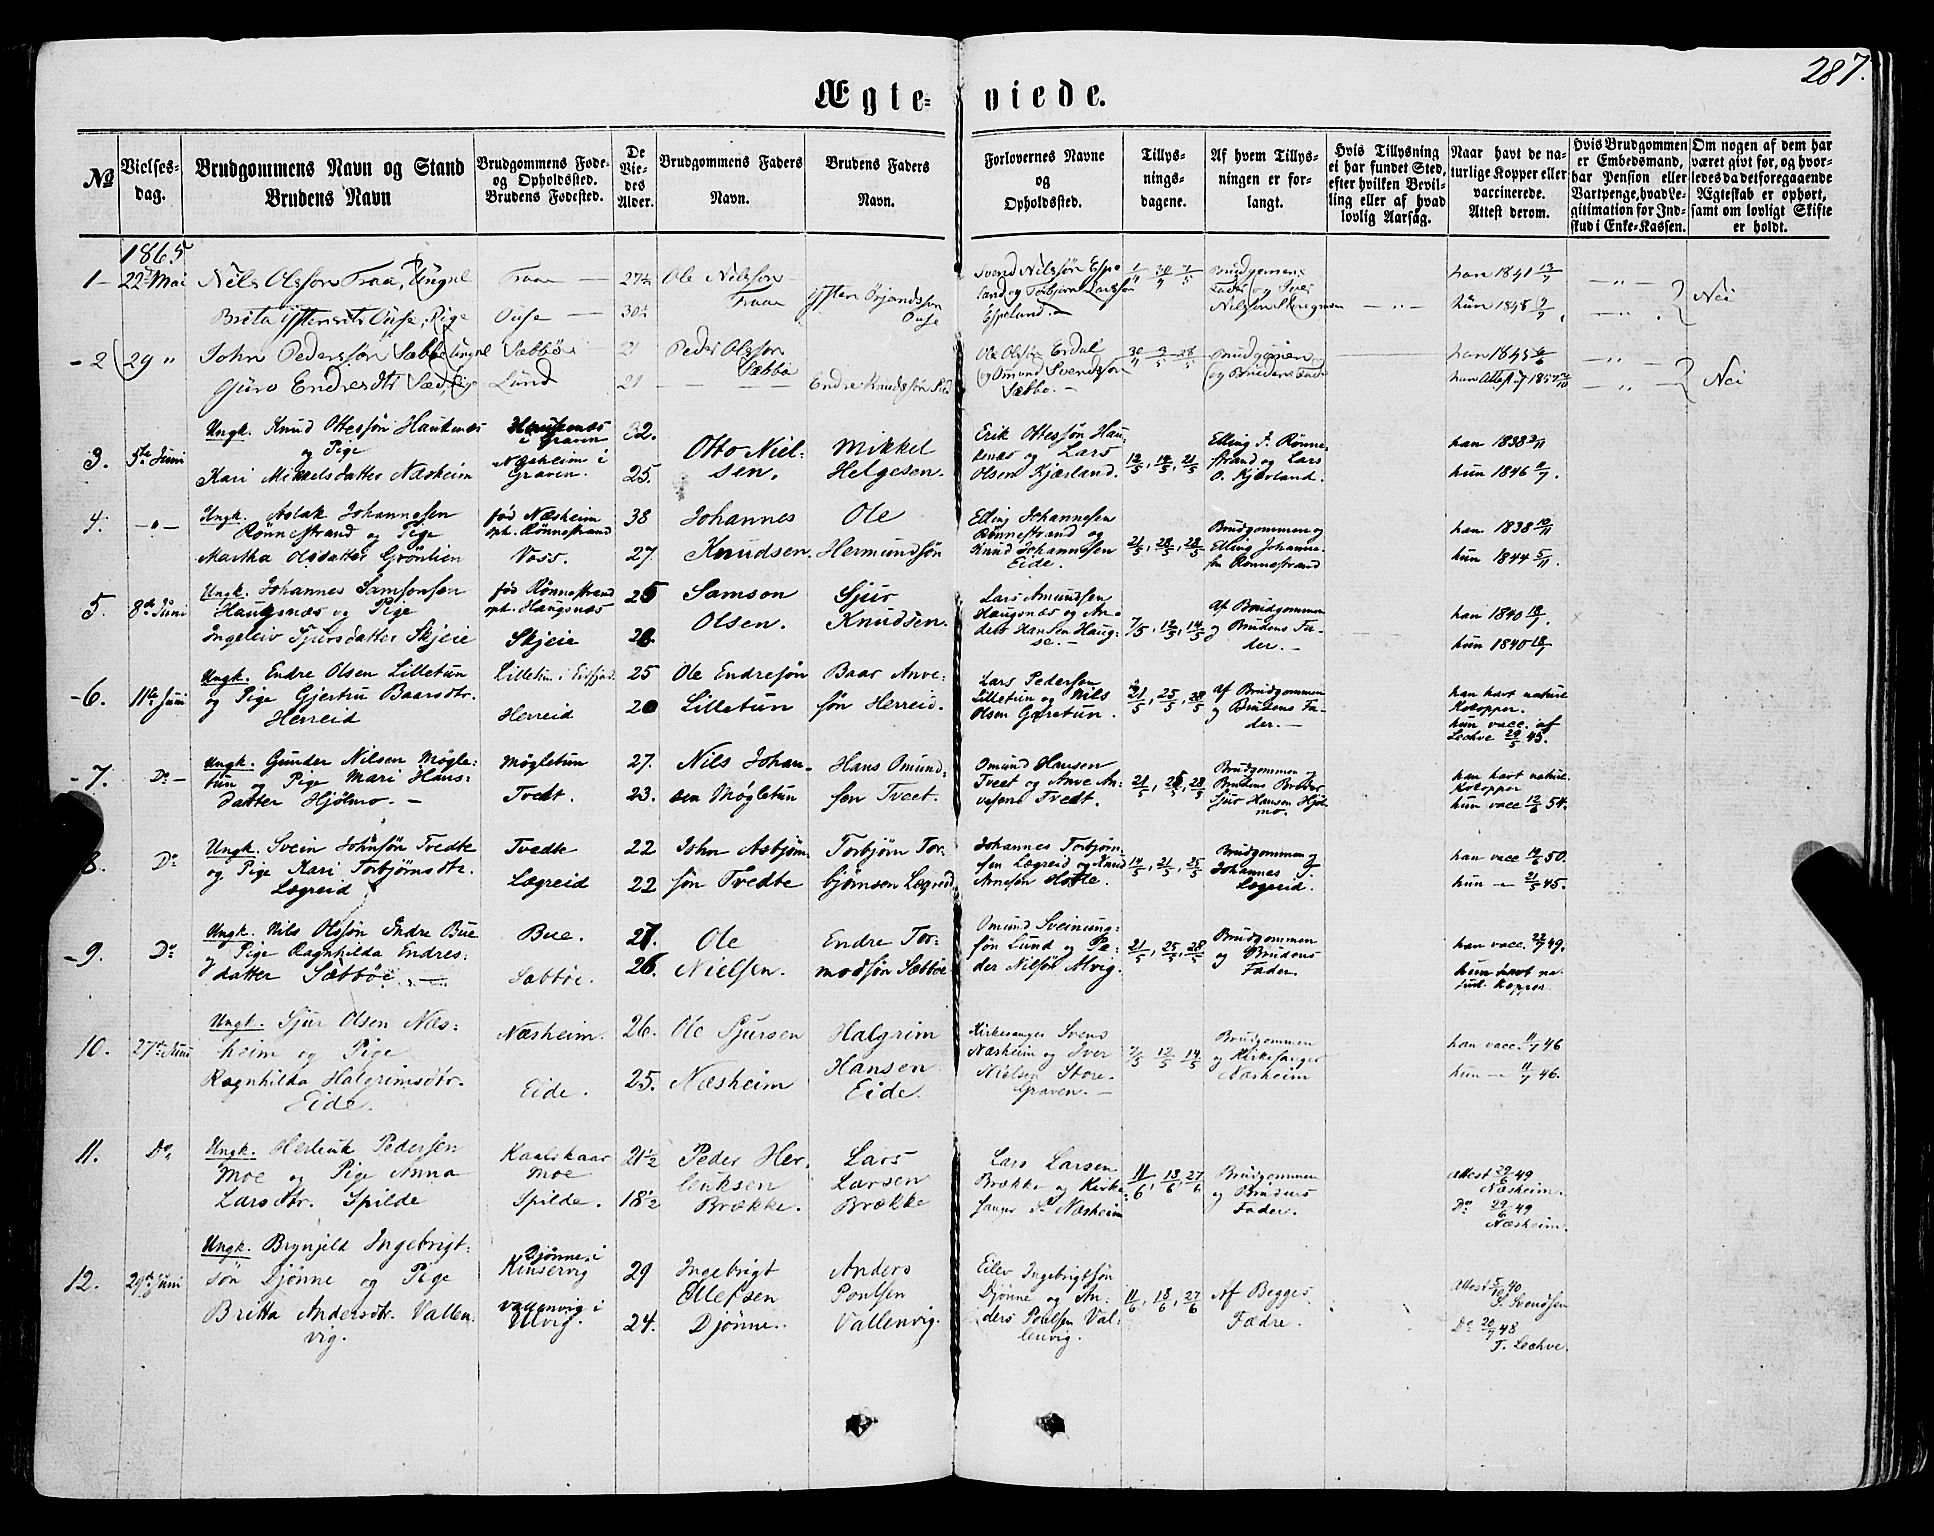 287.
Ægte- viede.
№
Vielses-
dag.
Brudgommens Navn og Stand
Brudens Navn
Brudgommens Føde-
og Opholdssted.
Brudens Fødested.
De
Vie-
des
Alder.
Brudgommens Faders
Navn.
Brudens Faders
Navn.
Forlovernes Navne
og
Opholdssted.
Tillys-
nings-
dagene.
Af hvem Tillys-
ningen er for-
langt.
Hvis Tillysning
ei har fundet Sted,
efter hvilken Bevil-
ling eller af hvad
lovlig Aarsag.
Naar havt de na-
turlige Kopper eller
vaccinerede.
Attest derom.
Hvis Brudgommen
er Embedsmand,
har Pension eller
Vartpenge, hvad Le-
gitimation for Ind-
skud i Enke-Kassen.
Om nogen af dem har
været givt før, og hvor-
ledes da det foregaaende
Ægteskab er ophørt,
samt om lovligt Skifte
er holdt.
1865
1 - 22 Mai
Nils Olsson Traa, Ungk
Traa
27½
Ole Nilsson
Traa
Brita Ystensdtr Ouse, Pige
Ouse
30½
Ysten Ørjandssøn
Ouse
Svend Nilssøn Espe
land og Torbjørn Larssøn
Espeland
1/4 30/4 7/5
Brudgommens
Fader og Iver
Nilssen
han 1841 13/7
hun 1848 9/7
Nei
- 2 29 "
John Pederssøn Sæbbe Ungk
Sæbbø
21
Peder Olssøn
Sæbbø
Guro Endresdtr Sæd, Pige
Lund
21
Endre Knudssøn Sæd
Ole Olssøn Erdal
og Omund Svendssøn
Sæbbø. -
30/4 3/5 28/5
Brudgommen
og Brudens Fader
han 1845 6/6
hun Attest 1857
Nei
3. 5te Juni
Ungk. Knud Ottessøn Haukenæs
og Pige
Kari Mikkelsdatter Næsheim
Haukenæs
i Graven
Næsheim i
Graven.
32.
25.
Otto Niel-
sen.
Mikkel
Helgesen.
Erik Ottessøn Hau-
kenæs og Lars
Olsen Kjærland.
12/5, 14/5, 21/5
Elling J. Rønne-
strand og Lars
O. Kjærland.
han 1833 2/11
hun 1846 2/7.
4. -"-
Ungk. Aslak Johannesen
Rønnestrand og Pige
Martha Olsdatter Grønlien
fød Næsheim
oph. Rønnestrand
Voss.
38
27.
Johannes
Knudsen.
Ole
Hermundsøn
Elling Johannesen
Rønnestrand og
Knud Johannesen
Eide.
21/5, 28/5, 28/5
Brudgommen og
Elling Johanne-
sen Rønnestrand
han 1838 10/11
hun 1844 5/11.
5. 8de Juni
Ungk. Johannes Samsonsen
Haugsnæs og Pige
Ingeleiv Sjursdatter Skjeie
fød Rønnestrand
oph. Haugsnæs
Skjeie
25
26
Samson
Olsen.
Sjur
Knudsen.
Lars Amundsen
Haugsnæs og An-
ders Hansen Haug-
se. -
7/5, 12/5, 14/5
Af Brudgommen
og Brudens Fa-
der. -
han 1840 18/7.
hun 1840 18/7
- 6. 11te Juni
Ungk. Endre Olsen Lilletun
og Pige Gjertru Baarsdtr.
Herreid
Lilletun i Eidfjord
Herreid
25
20
Ole Endresøn
Lilletun
Baar Anve-
søn Herreid.
Lars Pedersen
Lilletun og Nils
Olsen Garetun.
21/5, 25/5, 28/5
Af Brudgommen
og Brudens Fa-
der. -
han havt naturl.
Kokopper.
hun vacc. af
Lechve 29/5 45.
- 7. Do -
Ungk. Gunder Nilsen Møgle-
tun og Pige Mari Hans-
datter Hjølmo. -
Møgletun
Tvedt.
27.
23.
Nils Johan-
sen Møgletun
Hans Omund-
sen Tveet.
Omund Hansen
Tveet og Anve An-
vesøn Tvedt.
21/5, 25/5, 28/5
Brudgommen og
Brudens Broder
Sjur Hansen Hjøl-
mo.
han havt naturl.
Kokopper
hun vacc 12/6 54.
8. Do
Ungk. Svein Johnsøn Tvedte
og Pige Kari Torbjørnsdtr.
Lægreid
Tvedte
Lægreid
22
22
John Asbjørn-
søn Tvedte
Torbjørn Tor-
bjørnsen Lægreid
Johannes Torbjørn-
sen Lægreid og Knud
Arnesen Hotle.
14/5, 21/5, 25/5
Brudgommen og
Johannes T.
Lægreid.
han vacc 14/6 50.
hun - 21/5 45.
- 9. Do
Ungk. Nils Olssøn Indre Bue
og Pige Ragnhilda Endres-
datter Sæbbøe.
Bue.
Sæbbøe.
27.
26.
Ole
Nielsen.
Endre Tor-
modsøn Sæbbøe
Omund Sveinung-
søn Lund og Pe-
der Nilsøn Alvig.
21/5, 25/5, 28/5
Brudgommen
og Brudens
Fader.
han vacc. 22/7 49.
hun havt na-
turl. Kopper
10. 27de Juni
Ungk. Sjur Olsen Næs-
heim og Pige
Ragnhilda Halgrimsdtr.
Eide.
Næsheim.
Eide.
26.
25.
Ole Sjursen
Næsheim
Halgrim
Hansen
Eide.
Kirkesanger Svend
Næsheim og Iver
Nielsen Store-
Graven. -
7/5 12/5 14/5
Brudgommen
og Kirkesanger
Næsheim
han vacc. 11/7 46
hun - 11/7 46.
11. Do
Ungk. Herleuk Pedersen
Moe og Pige Anna
Larsdtr. Spilde
Kaalskaar
Moe
Spilde.
21½
18½
Peder Her-
leuksen
Brække.
Lars
Larsen
Brække
Lars Larsen
Brække og Kirke-
sanger S. Næsheim
11/6, 18/6, 27/6
Brudgommen
og Brudens
Fader.
Attest 29/6 49
Næsheim.
Do 29/6 49
Næsheim.
12. 29de Juni
Ungk. Brynjeld Ingebrigt-
søn Djønne og Pige
Britta Andersdtr. Vallen-
vig.
Djønne i
Kinservig
Vallenvig i
Ulvig.
29
24.
Ingebrigt
Ellefsen
Djønne.
Anders
Poulsen
Vallenvig.
Eilev Ingebrigtsøn
Djønne og An-
ders Poulsen Val-
lenvig.
11/6, 18/6, 27/6
Af Begges
Fædre.
Attest 5/10 40
S. Svendsen
Do 20/7 48
T. Lechve.